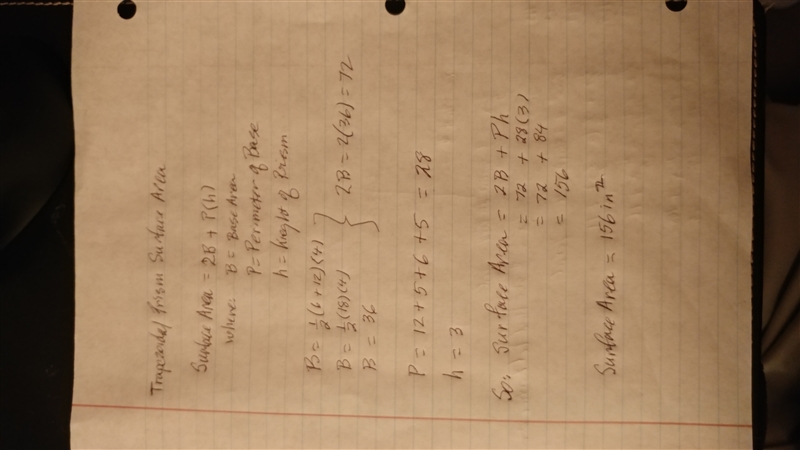 Trapezoidal Prism Surface Area
Surface Area = 2B + P(h)
where: B = Base Area
P = Perimeter of Base
h = height of Prism
B = 1/2 (6+12)(4)
B = 1/2 (18)(4) } 2B = 2(36) = 72
B = 36
P = 12 + 5 + 6 + 5 = 28
h = 3
So: Surface Area = 2B + Ph
= 72 + 28(3)
= 72 + 84
= 156
Surface Area = 156 in²